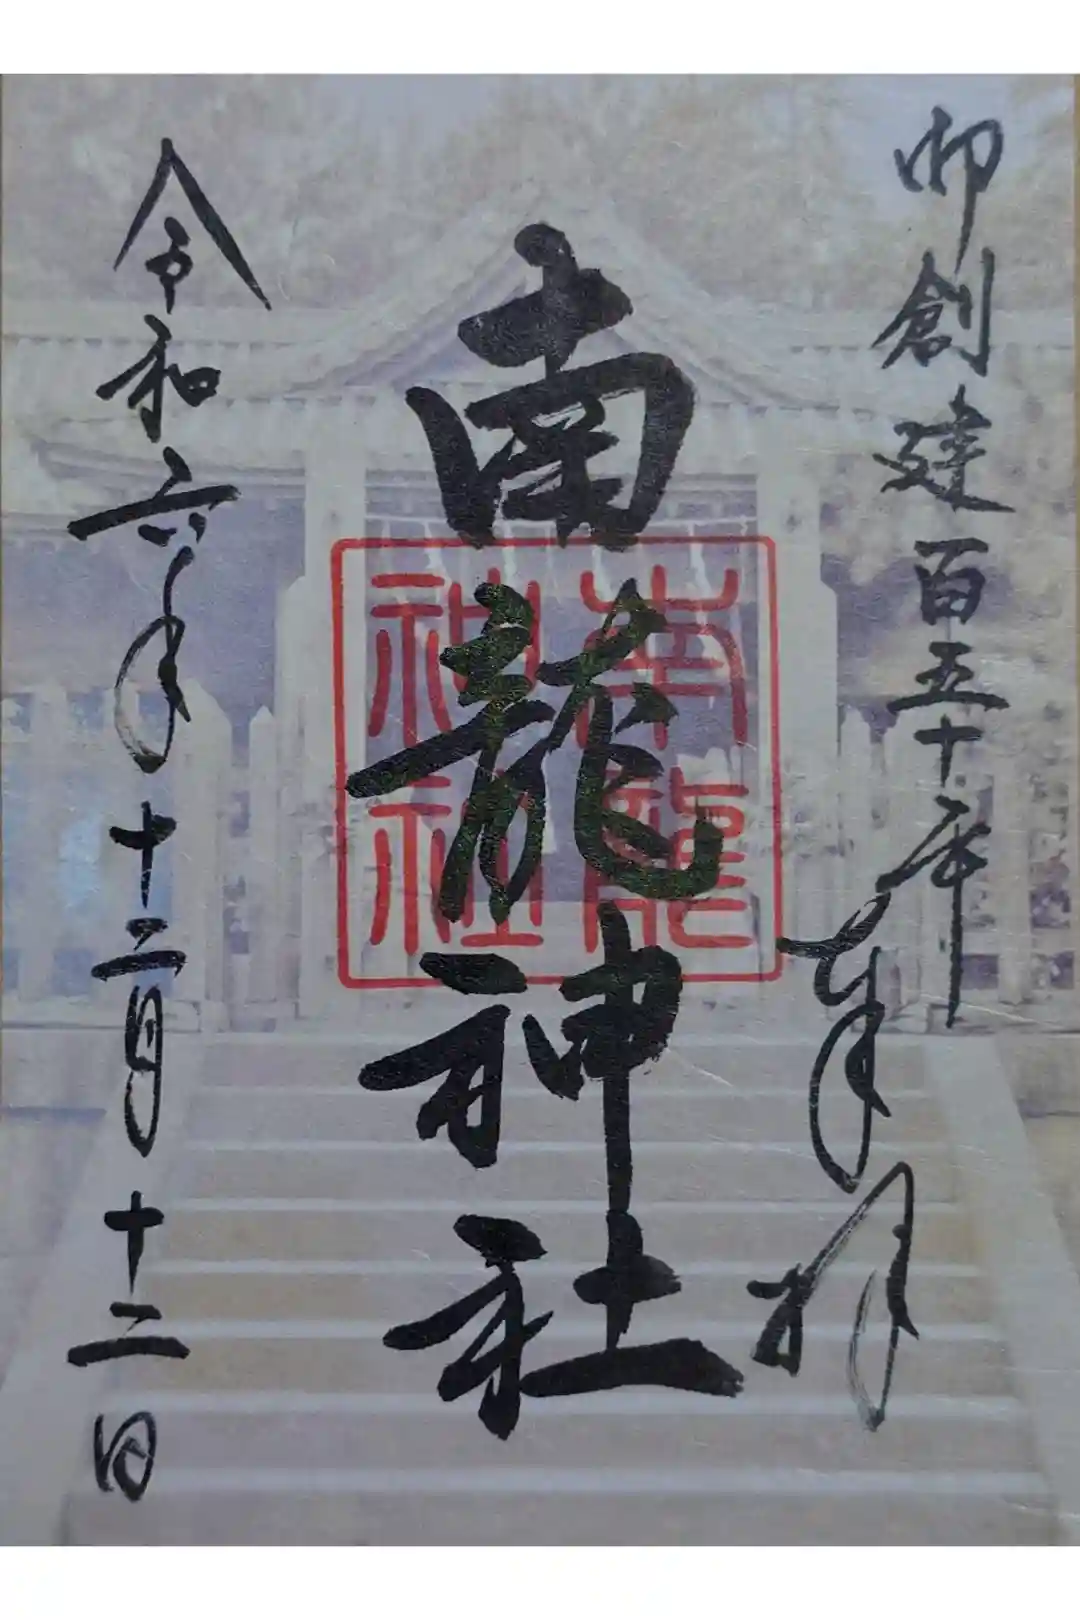 御創建百五十年
奉拝
南龍神社
南龍
神社
令和六年十二月十二日